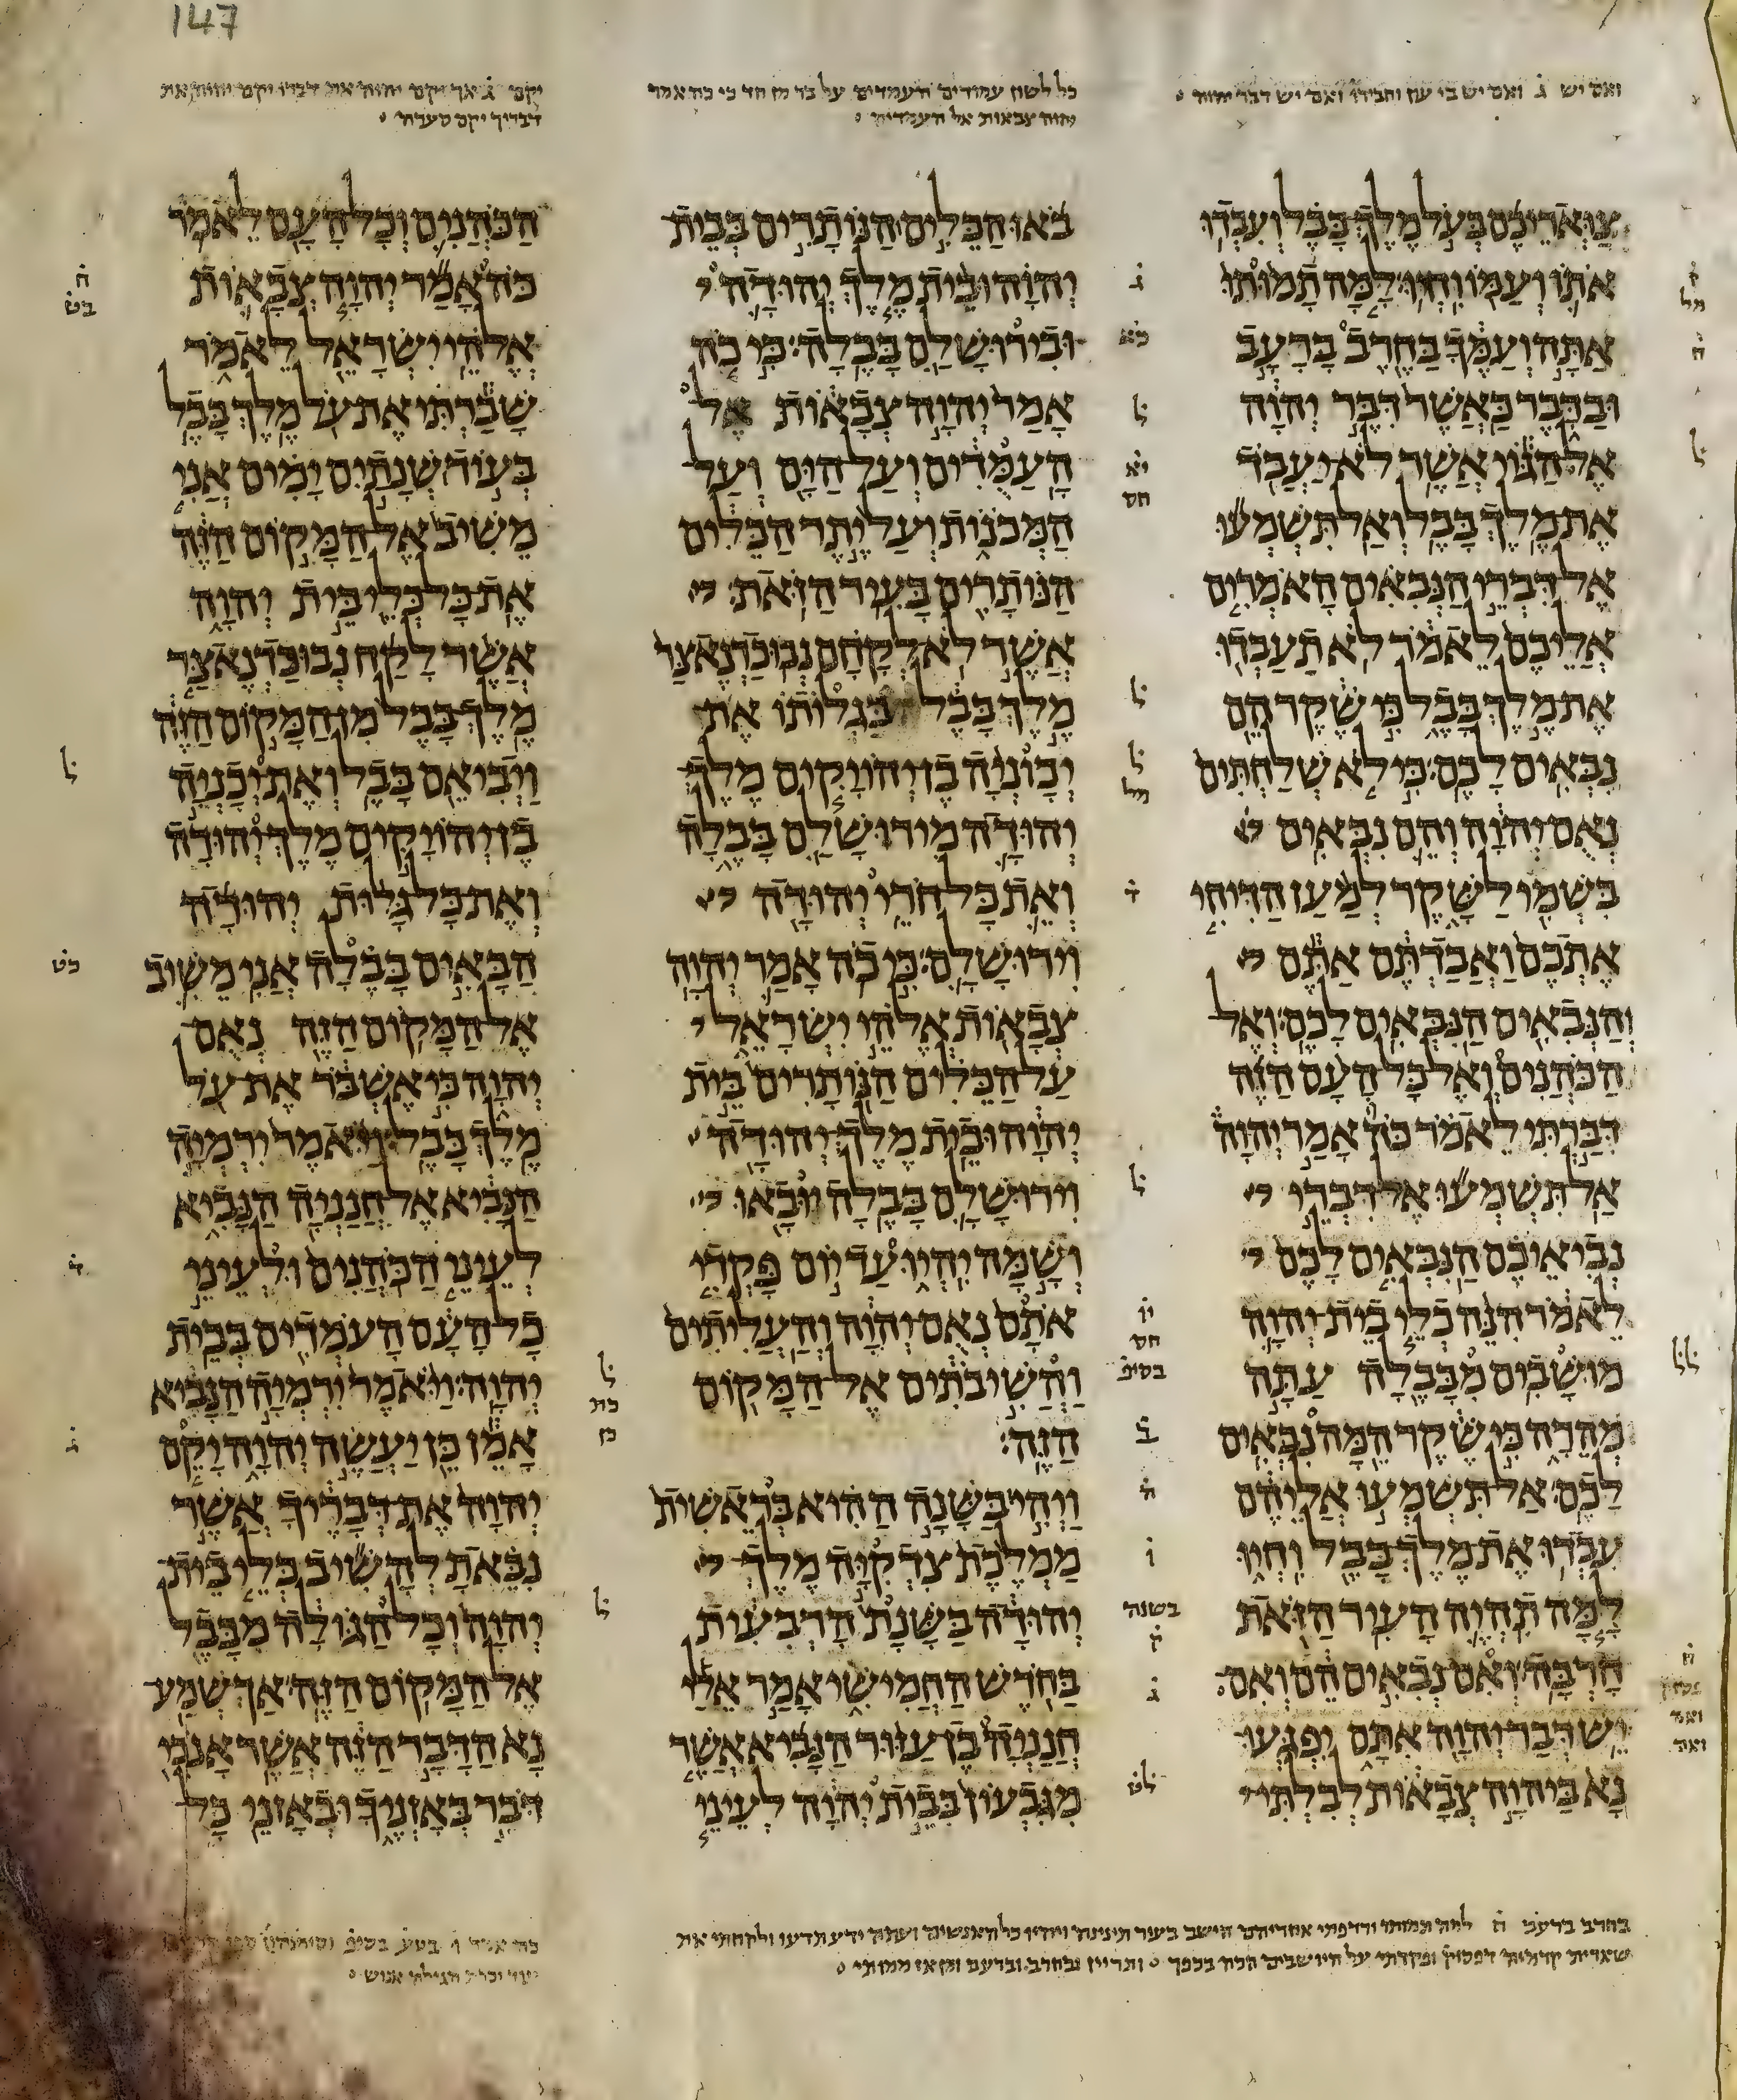 147
ואם יש ג ואם יש בי עון וחבירו ואם יש דבר יהוה
צואריכם בעל מלך בבל ועבדו
אתו ועמו וחיו למה תמותו
אתה ועמך בחרב ברעב
ובדבר כאשר דבר יהוה
אל הגוי אשר לא יעבד
את מלך בבל ואל תשמעו
אל דברי הנבאים האמרים
אליכם לאמר לא תעבדו
את מלך בבל כי שקר הם
נבאים לכם כי לא שלחתים
נאם יהוה והם נבאים
בשמי לשקר למען הדיחי
אתכם ואבדתם אתם
והנבאים הנבאים לכם ואל
הכהנים ואל כל העם הזה
דברתי לאמר כה אמר יהוה
אל תשמעו אל דברי
נביאיכם הנבאים לכם
לאמר הנה כלי בית יהוה
מושבים מבבלה עתה
מהרה כי שקר המה נבאים
לכם אל תשמעו אליהם
עבדו את מלך בבל וחיו
למה תהיה העיר הזאת
חרבה ואם נבאים הם ואם
יש דבר יהוה אתם יפגעו
נא ביהוה צבאות לבלתי
כל לשון עמודים העמדים על בד מן חד כי כה אמר
יהוה צבאות אל העמדים
באו הכלים הנותרים בבית
יהוה ובית מלך יהודה
ובירושלם בבלה כי כה
אמר יהוה צבאות אל
העמדים ועל הים ועל
המכנות ועל יתר הכלים
הנותרים בעיר הזאת
אשר לא לקחם נבוכדנאצר
מלך בבל בגלותו את
יכוניה בן יהויקים מלך
יהודה מירושלם בבלה
ואת כל חרי יהודה
וירושלם כי כה אמר יהוה
צבאות אלהי ישראל
על הכלים הנותרים בית
יהוה ובית מלך יהודה
וירושלם בבלה יובאו
ושמה יהיו עד יום פקדי
אתם נאם יהוה והעליתים
והשיבתים אל המקום
הזה
ויהי בשנה ההיא בראשית
ממלכת צדקיה מלך
יהודה בשנת הרבעית
בחדש החמישי אמר אלי
חנניה בן עזור הנביא אשר
מגבעון בבית יהוה לעיני
יקם ג אך יקם יהוה את דברו יקם יהוה את
דבריך יקם סערה
הכהנים וכל העם לאמר
כה אמר יהוה צבאות
אלהי ישראל לאמר
שברתי את על מלך בבל
בעוד שנתים ימים אני
משיב אל המקום הזה
את כל כלי בית יהוה
אשר לקח נבוכדנאצר
מלך בבל מן המקום הזה
ויביאם בבל ואת יכניה
בן יהויקים מלך יהודה
ואת כל גלות יהודה
הבאים בבלה אני משיב
אל המקום הזה נאם
יהוה כי אשבר את על
מלך בבל ויאמר ירמיה
הנביא אל חנניה הנביא
לעיני הכהנים ולעיני
כל העם העמדים בבית
יהוה ויאמר ירמיה הנביא
אמן כן יעשה יהוה יקם
יהוה את דבריך אשר
נבאת להשיב כלי בית
יהוה וכל הגולה מבבל
אל המקום הזה אך שמע
נא הדבר הזה אשר אנכי
דבר באזניך ובאזני כל